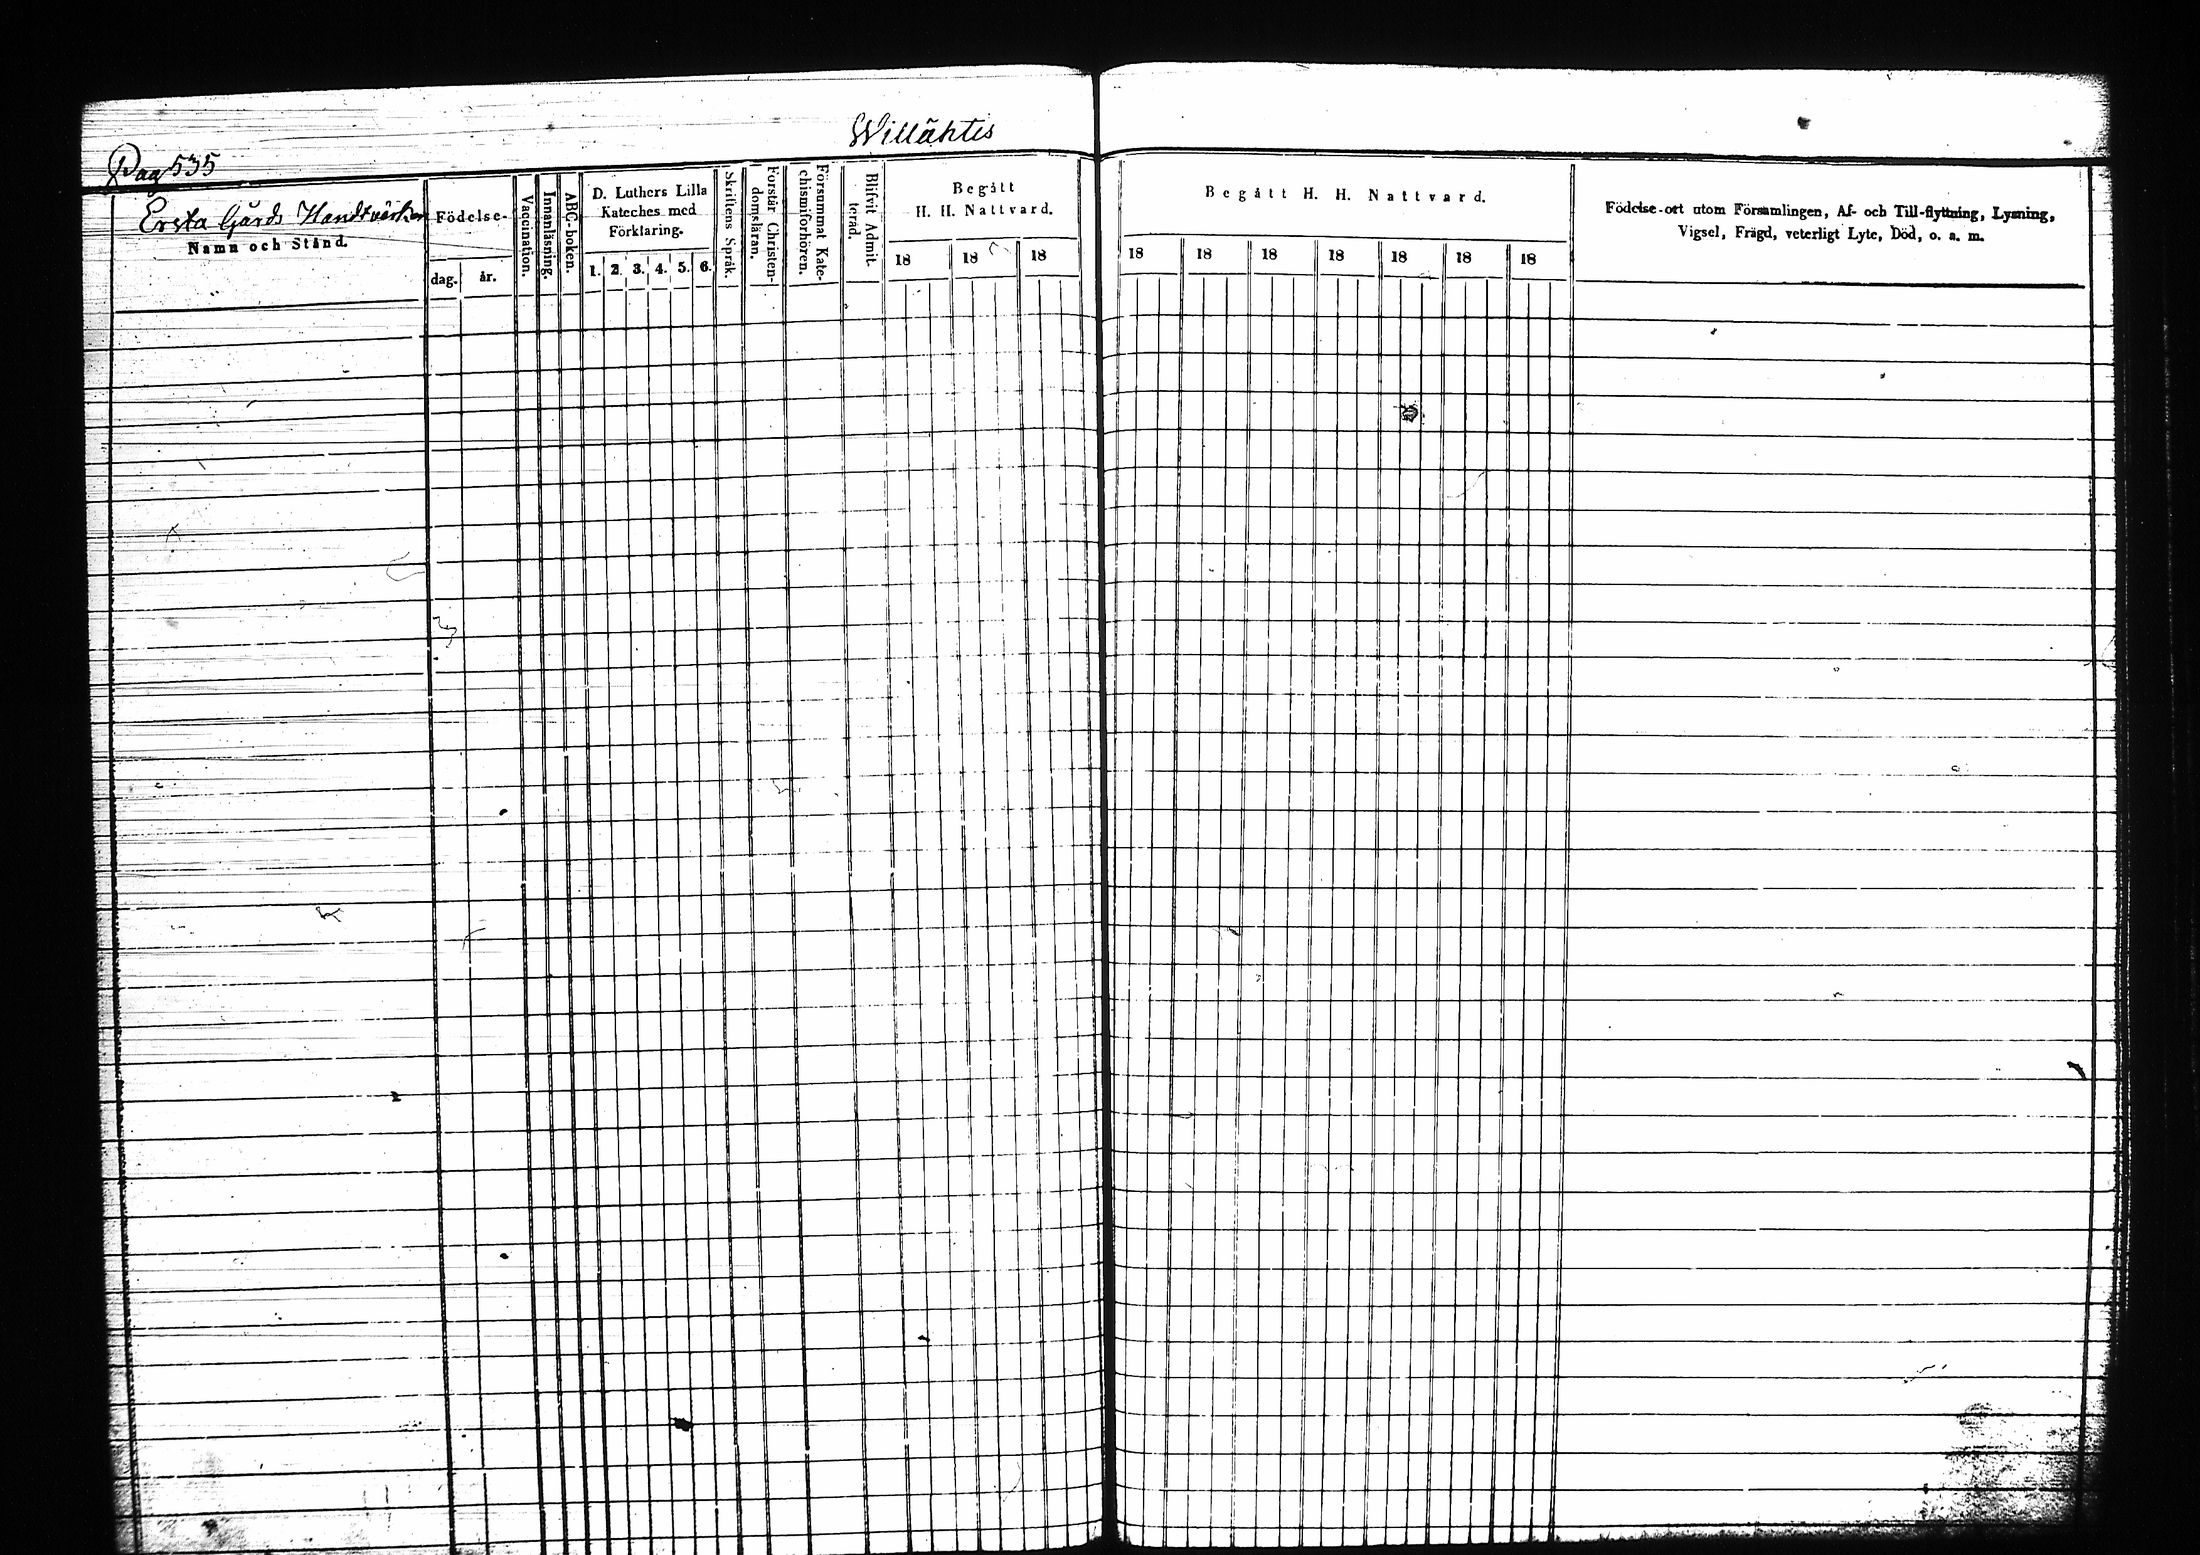 Willähtis
Pag 535
Ersta Gårds Handtvärkare
Namn och Stånd.
Födelse-
dag. år.
Vaccination.
Innanläsning.
ABC-boken.
D. Luthers Lilla
Kateches med
Förklaring.
1. 2. 3. 4. 5. 6.
Skriftens Språk.
Förstår Christen-
domsläran.
Försummat Kate-
chismiförhören.
Blifvit Admit-
terad.
Begått
H. H. Nattvard.
18 18 18
Begått H. H. Nattvard.
18 18 18 18 18 18 18
Födelse-ort utom Församlingen, Af- och Till-flyttning, Lysning,
Vigsel, Frägd, veterligt Lyte, Död, o. a. m.